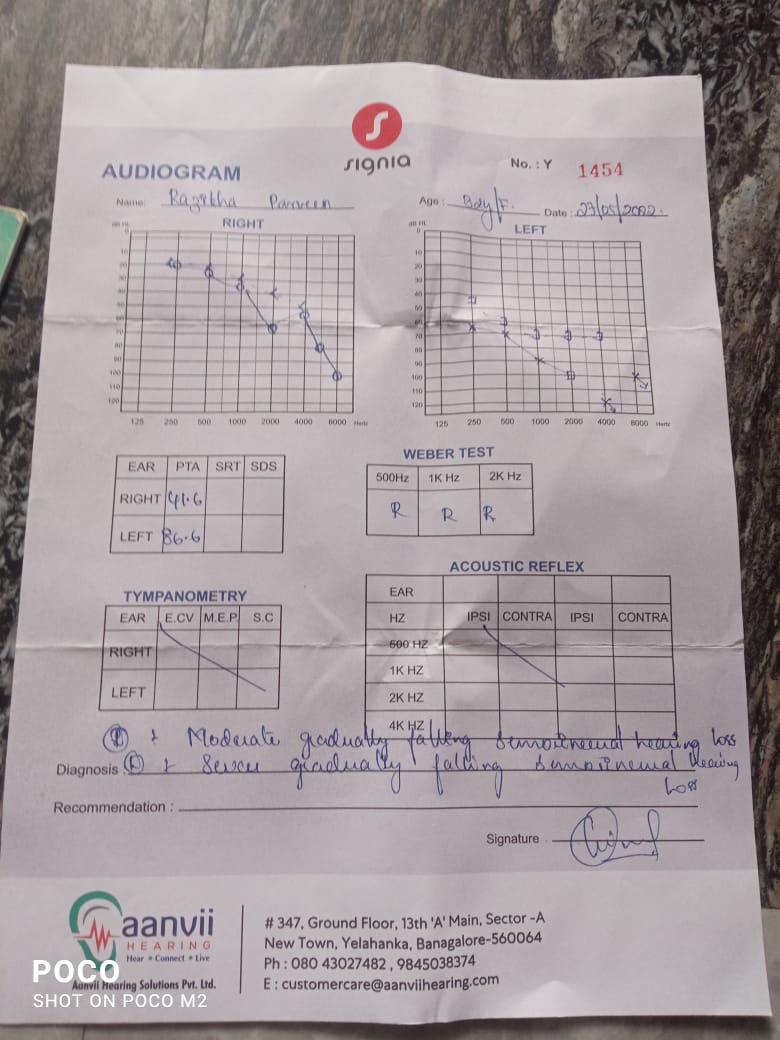 signia
AUDIOGRAM
No. : Y 1454
Name: Parveen Age : Date : 23/05/2022.
RIGHT LEFT
dB HL
0
10
20
30
40
50
60
70
80
90
100
110
120
125 250 500 1000 2000 4000 8000 Hertz
dB HL
0
10
20
30
40
50
60
70
80
90
100
110
120
125 250 500 1000 2000 4000 8000 Hertz
EAR PTA SRT SDS
RIGHT 41.6
LEFT 86.6
WEBER TEST
500Hz 1K Hz 2K Hz
R R R
TYMPANOMETRY
EAR E.CV M.E.P. S.C
RIGHT
LEFT
ACOUSTIC REFLEX
EAR
HZ IPSI CONTRA IPSI CONTRA
500 HZ
1K HZ
2K HZ
4K HZ
(R) : Moderate gradually falling sensorineural hearing loss
Diagnosis (L) : Severe gradually falling sensorineural hearing
loss
Recommendation :
Signature
aanvii
HEARING
Hear • Connect • Live
Aanvii Hearing Solutions Pvt. Ltd.
# 347, Ground Floor, 13th 'A' Main, Sector -A
New Town, Yelahanka, Banagalore-560064
Ph : 080 43027482 , 9845038374
E : customercare@aanviihearing.com
POCO
SHOT ON POCO M2